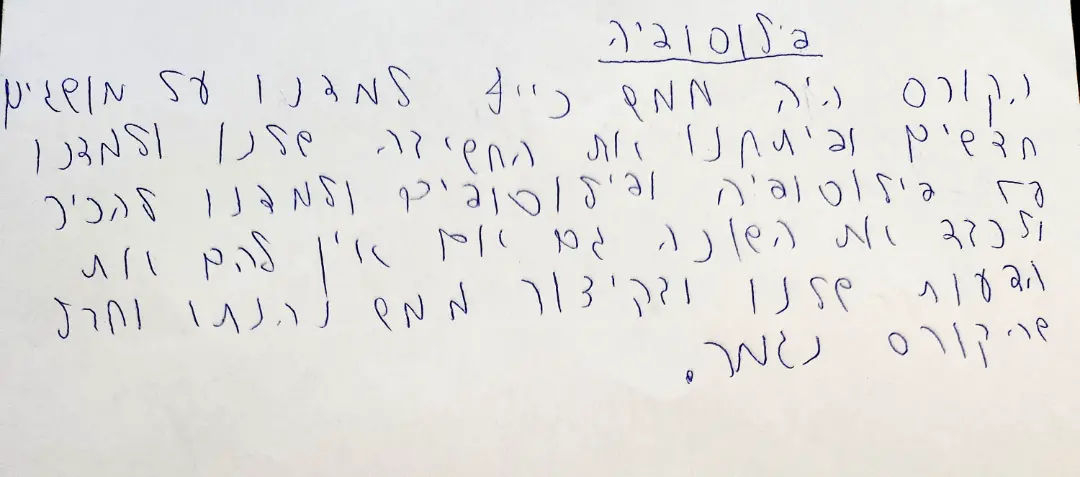 פילוסופיה
הקורס היה ממש כייף למדנו על מושגים
חדשים ופיתחנו את החשיבה שלנו ולמדנו
על פילוסופיה ופילוסופים ולמדנו להכיר
ולכבד את השונה גם אם אין להם את
הדעות שלנו ובקיצור ממש נהנתו וחבל
שהקורס נגמר.